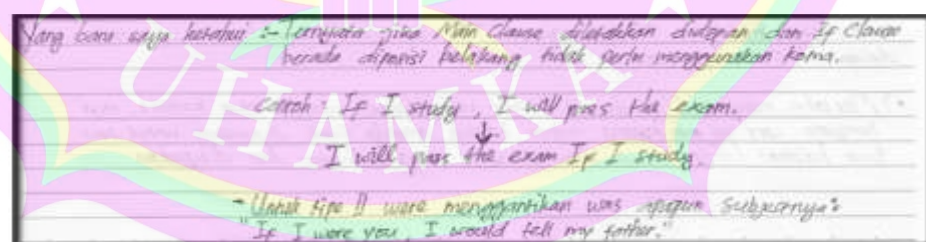 Yang baru saya ketahui :- Ternyata jika Main Clause diletakkan didepan dan If Clause
berada diposisi belakang tidak perlu menggunakan koma.
contoh : If I study , I will pass the exam.
↓
I will pass the exam If I study.
- Untuk tipe II were menggantikan was apapun subjectnya:
"If I were you, I would tell my father."
UHAMKA